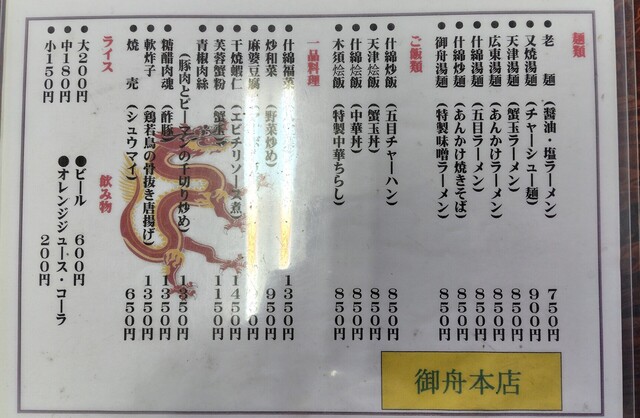 麺類
● 老麺 (醤油・塩ラーメン) 750円
● 叉焼湯麺 (チャーシュー麺) 900円
● 天津湯麺 (蟹玉ラーメン) 850円
● 広東湯麺 (あんかけラーメン) 850円
● 什錦湯麺 (五目ラーメン) 850円
● 什錦炒麺 (あんかけ焼きそば) 850円
● 御舟湯麺 (特製味噌ラーメン) 850円
ご飯類
● 什錦炒飯 (五目チャーハン) 850円
● 天津烩飯 (蟹玉丼) 850円
● 什錦烩飯 (中華丼) 850円
● 木須烩飯 (特製中華ちらし) 850円
一品料理
● 什綿福菜 1350円
● 炒和菜 (野菜炒め) 950円
● 麻婆豆腐 950円
● 干焼蝦仁 (エビチリソース煮) 1450円
● 芙蓉蟹粉 (蟹玉) 1150円
● 青椒肉絲
(豚肉とピーマンの千切り炒め) 1350円
● 糖醋肉魂 (酢豚) 1350円
● 軟炸子 (鶏若鳥の骨抜き唐揚げ) 1350円
● 焼売 (シュウマイ) 650円
ライス
● 大200円
● 中180円
● 小150円
飲み物
●ビール 600円
●オレンジジュース・コーラ
200円
御舟本店